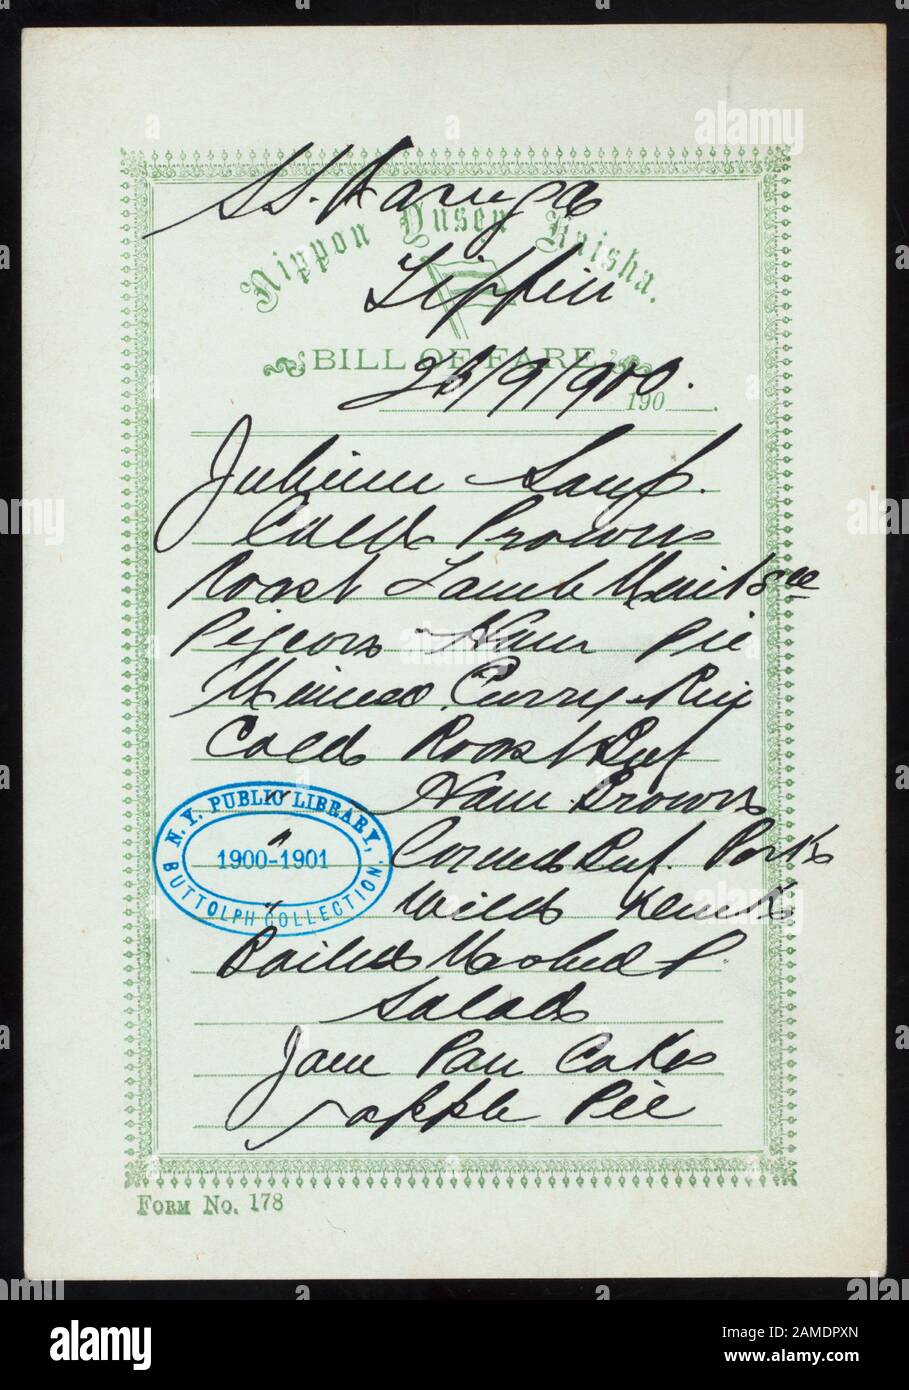 SS. Kasuga
Nippon Yusen Kaisha.
Tiffin
BILL OF FARE
26/9/1900.
190
Julienne Soup.
Cold Prawns
Roast Lamb Mint Sce
Pigeons Ham Pie
Minced Curry Rice
Cold Roast Beef
" Ham Brawn
" Corned Beef. Pork
" Wild
Boiled Mashed P.
Salad
Jam Pan Cakes
apple Pie
N.Y. PUBLIC LIBRARY,
1900-1901
BUTTOLPH COLLECTION
FORM No. 178
alamy
alamy
Image ID: 2AMDPXN
www.alamy.com